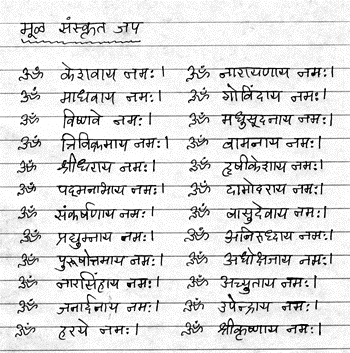 मूळ संस्कृत जप
ॐ केशवाय नमः। ॐ नारायणाय नमः।
ॐ माधवाय नमः। ॐ गोविंदाय नमः।
ॐ विष्णवे नमः। ॐ मधुसूदनाय नमः।
ॐ त्रिविक्रमाय नमः। ॐ वामनाय नमः।
ॐ श्रीधराय नमः। ॐ हृषीकेशाय नमः।
ॐ पद्मनाभाय नमः। ॐ दामोदराय नमः।
ॐ संकर्षणाय नमः। ॐ वासुदेवाय नमः।
ॐ प्रद्युम्नाय नमः। ॐ अनिरुध्दाय नमः।
ॐ पुरूषोत्तमाय नमः। ॐ अधोक्षजाय नमः।
ॐ नारसिंहाय नमः। ॐ अच्युताय नमः।
ॐ जनार्दनाय नमः। ॐ उपेन्द्राय नमः।
ॐ हरये नमः। ॐ श्रीकृष्णाय नमः।